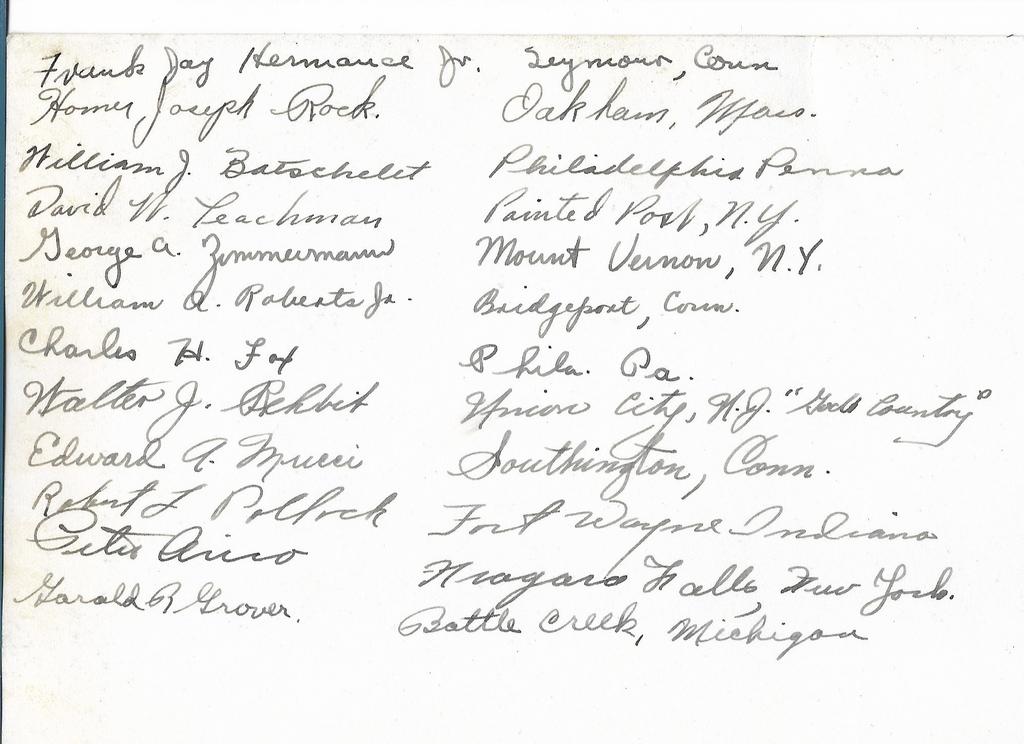 Frank Jay Hermance Jr. Seymour, Conn
Homer Joseph Rock. Oakham, Mass.
William J. Batschelet Philadelphia Penna
David W. Teachman Painted Post, N.Y.
George A. Zimmermann Mount Vernon, N.Y.
William A. Roberts Jr. Bridgeport, Conn.
Charles H. Fox Phila. Pa.
Walter J. Union City, N.J. "Gods Country"
Edward A. Mucci Southington, Conn.
Robert L Pollock Fort Wayne Indiana
Peter Niagara Falls, New York.
Garald R Grover. Battle Creek, Michigan